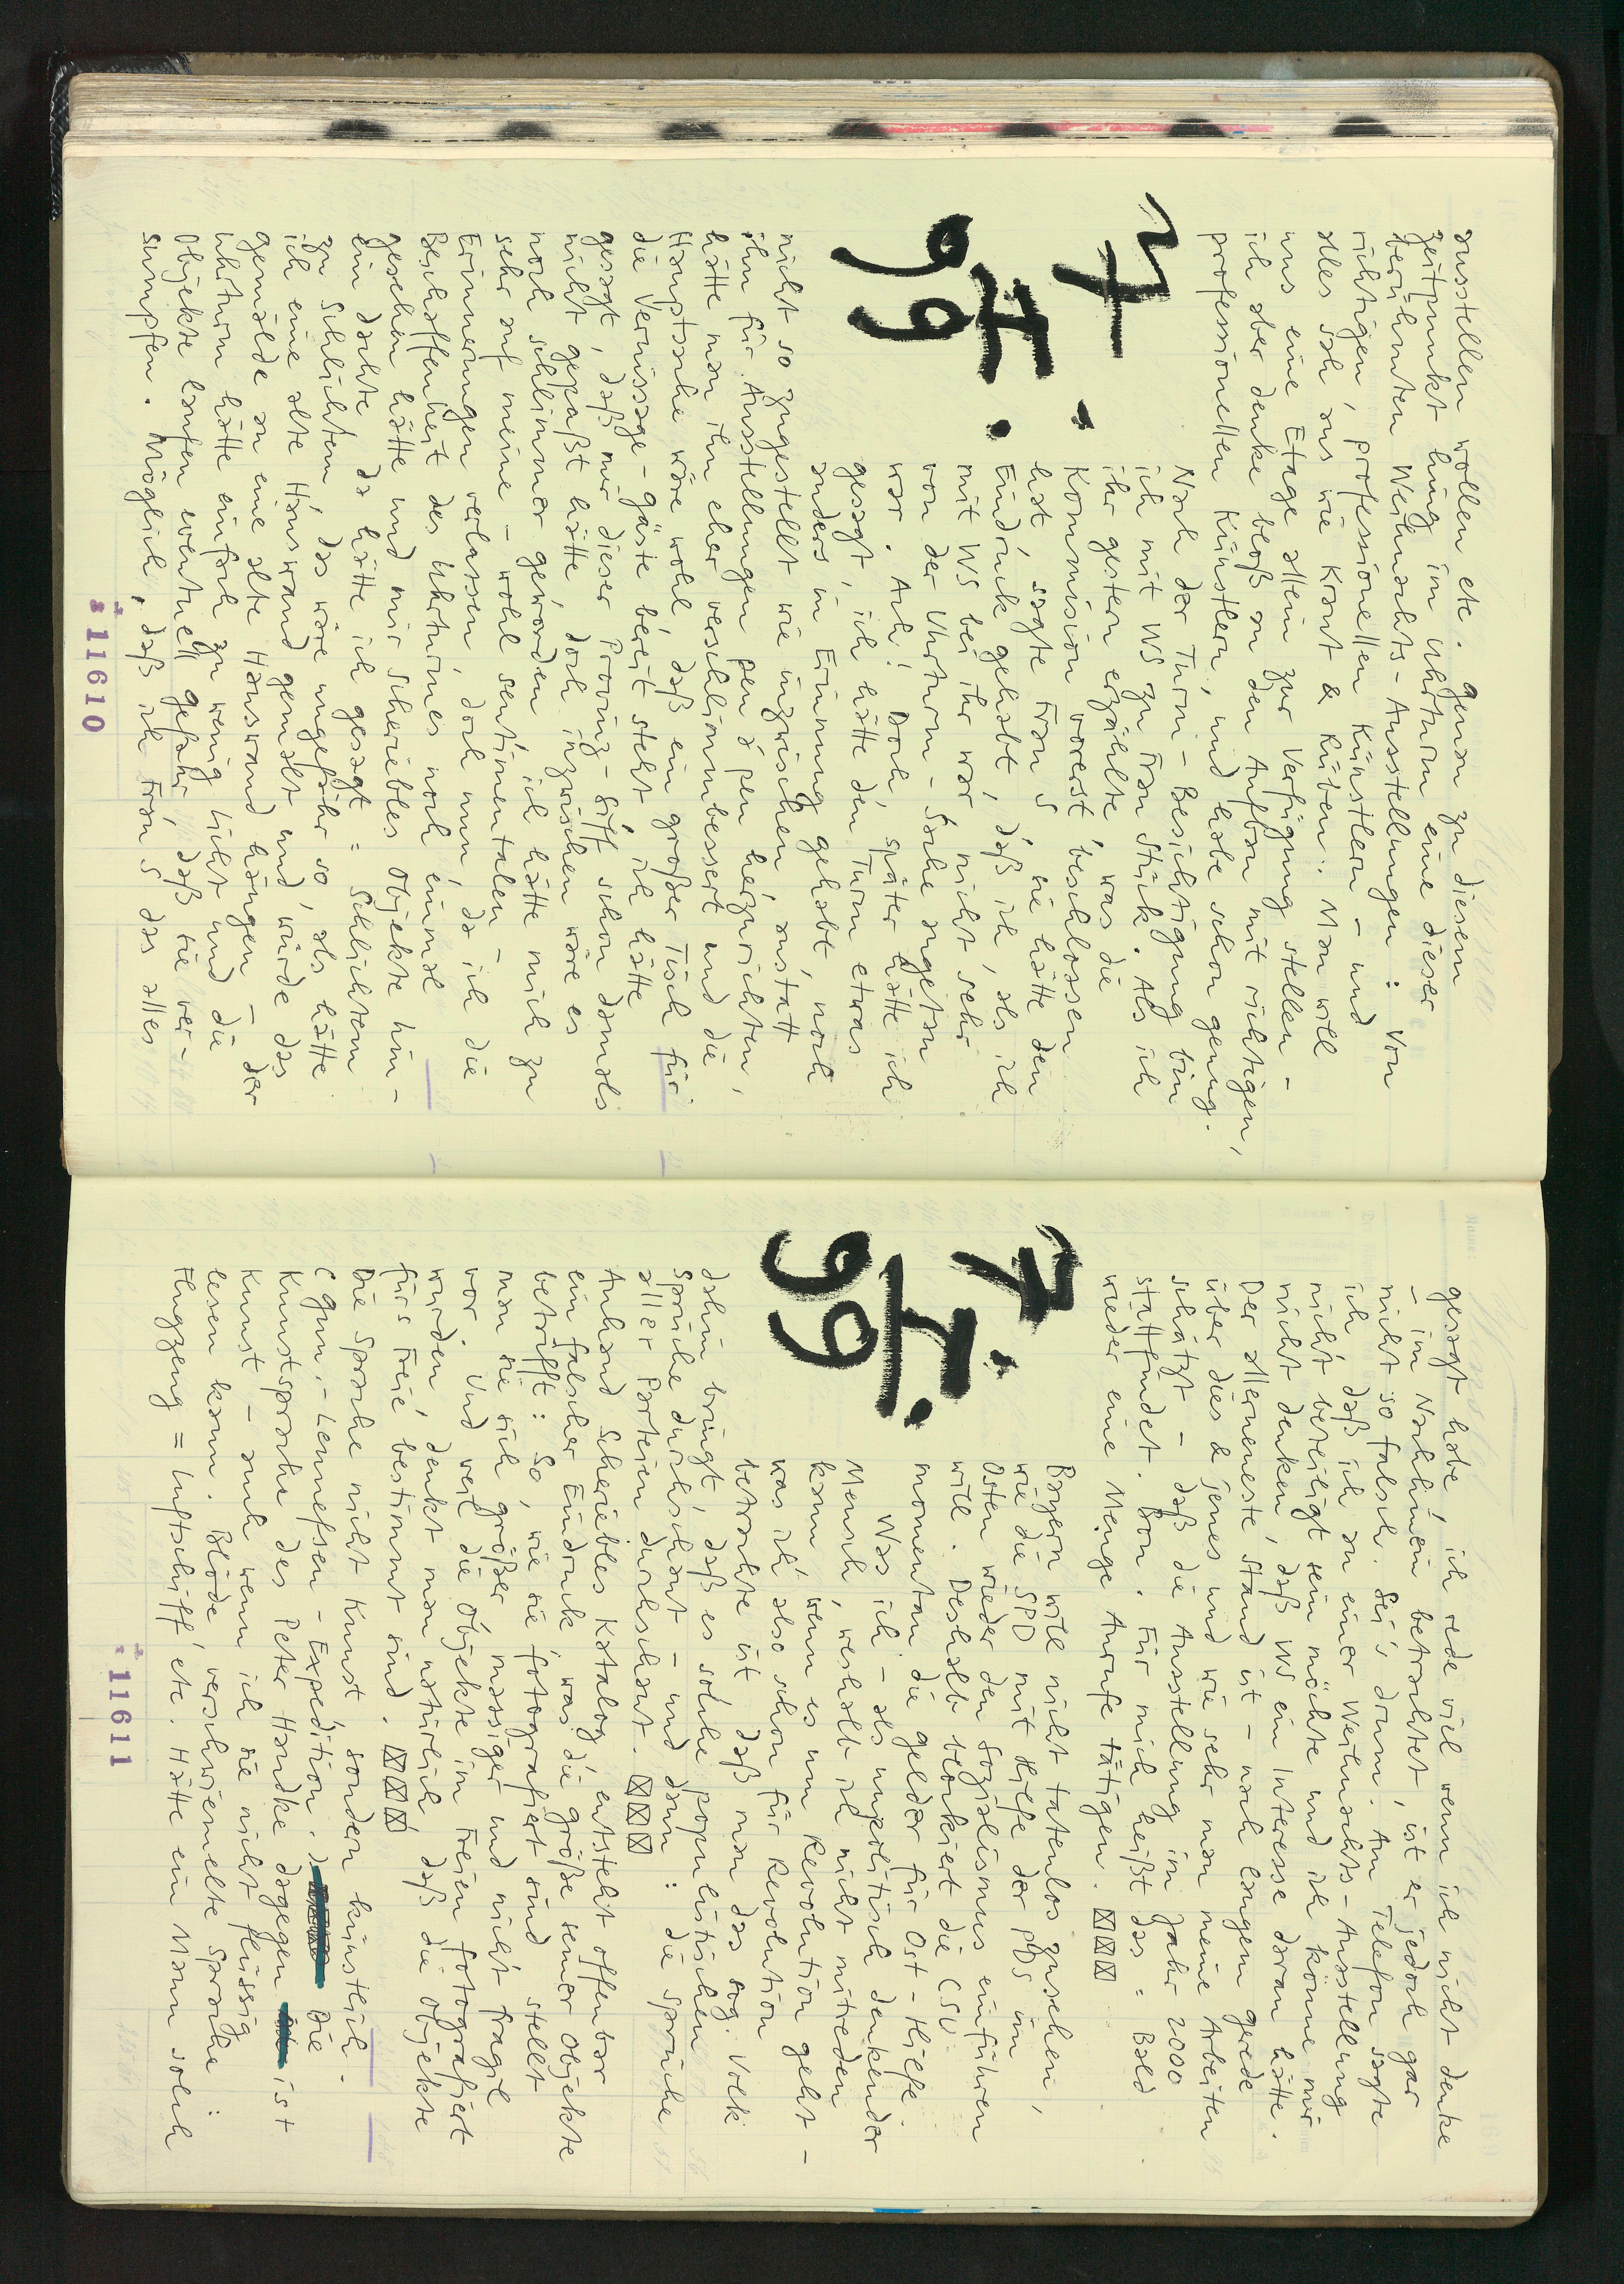 ausstellen wollen etc. Genau zu diesem
Zeitpunkt hing im Uhrturm eine dieser
berühmten Weihnachts-Ausstellungen: Von
richtigen, professionellen Künstlern – und
alles sah aus wie Kraut & Rüben. Man will
uns eine Etage allein zur Verfügung stellen –
ich aber denke bloß an den Aufbau mit richtigen,
professionellen Künstlern, und habe schon genug.
4.
Nach der Turm-Besichtigung bin
ich mit WS zu Frau Stück. Als ich
ihr gestern erzählte, was die
Kommission vorerst beschlossen
hat, sagte Frau S, sie hätte den
Eindruck gehabt, daß ich, als ich
mit WS bei ihr war, nicht sehr
von der Uhrturm-Sache angetan
war. Ach! Doch, später hätte ich
gesagt, ich hätte den Turm etwas
anders in Erinnung gehabt, noch
I.
99
nicht so zugestellt wie inzwischen, anstatt
ihn für Ausstellungen pen á pen herzurichten,
hätte man ihn eher verschlimmbessert und die
Hauptsache wäre wohl, daß ein großer Tisch für
die Vernissage-Gäste bereit steht, ich hätte
gesagt, daß mir dieser Provinz-Siff schon damals
nicht gepaßt hätte doch inzwischen wäre es
noch schlimmer geworden, ich hätte mich zu
sehr auf meine – wohl sentimentalen –
Erinnerungen verlassen, doch nun, da ich die
Beschaffenheit des Uhrturmes noch einmal
gesehen hätte und mir Scheriebles Objekte hin-
ein dachte, da hätte ich gesagt = Schlichtem
zu Schlichtem, das wäre ungefähr so, als hätte
ich eine alte Hauswand gemalt und würde das
Gemälde an eine alte Hauswand hängen – der
Uhrturm hätte einfach zu wenig Licht und die
Objekte laufen eventuell Gefahr, daß sie ver-
sumpfen. Möglich, daß ich Frau S das alles
11610
gesagt habe, ich rede viel wenn ich nicht denke
– im Nachhinein betrachtet, ist es jedoch gar
nicht so falsch. Sei's drum. Am Telefon sagte
ich, daß ich an einer Weihnachts-Ausstellung
nicht beteiligt sein möchte und ich könne mir
nicht denken, daß WS ein Interesse daran hätte.
Der allerneueste Stand ist – nach langem Gerede
über dies & jenes und wie sehr man meine Arbeiten
schätzt – daß die Ausstellung im Jahr 2000
stattfindet. Bon. Für mich heißt das = Bald
wieder eine Menge Anrufe tätigen. ☒☒☒
7.
Bayern will nicht tatenlos zusehen,
wie die SPD mit Hilfe der PDS im
Osten wieder den Sozialismus einführen
will. Deshalb blockiert die CSU
momentan die Gelder für Ost-Hilfe.
Was ich – als unpolitisch denkender
Mensch, weshalb ich nicht mitreden
kann, wenn es um Revolution geht –
was ich also schon für Revolution
betrachte ist, daß man das sog. Volk
I.
99
dahin bringt, daß es solche populistischen
Sprüche durchschaut – und dann: die Sprüche
aller Parteien durchschaut. ☒☒☒
Anhand Scheriebles Katalog, entsteht offenbar
ein falscher Eindruck, was die Größe seiner Objekte
betrifft: So, wie sie fotografiert sind, stellt
man sie sich größer, massiger und nicht fragil
vor. Und weil die Objekte im Freien fotografiert
wurden, denkt man natürlich, daß die Objekte
fürs Freie bestimmt sind. ☒☒☒
Die Sprache nicht Kunst sondern künstlich.
(Gunn.-Lennefsen-Expedition.) Die
Kunstsprache des Peter Handke dagegen ist
Kunst – auch wenn ich sie nicht flüssig
lesen kann. Blöde, verschwiemelte Sprache:
Flugzeug = Luftschiff, etc. Hätte ein Mann solch
11611